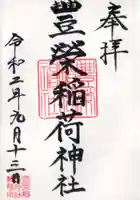 奉拝
豊榮稲荷神社
令和二年九月十三日